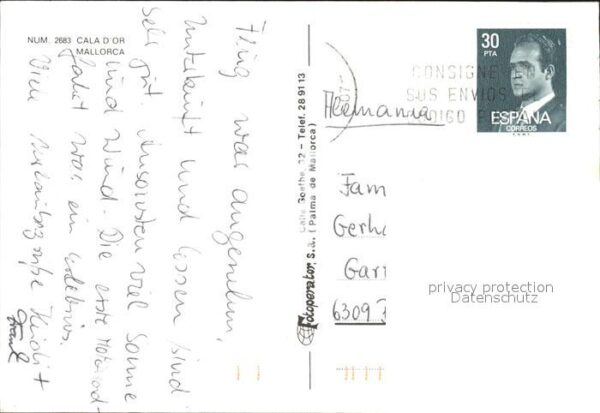 NUM. 2683 CALA D'OR
MALLORCA
Flug war angenehm,
Unterkunft und Essen sind
sehr gut. Ansonsten viel Sonne
und Wind. Die erste Motorrad-
fahrt war ein Erlebnis.
Viele Urlaubsgrüße Heidi +
Frank
Fotoperator, S.A. Calle Goethe, 32 - Telef. 28 91 13
(Palma de Mallorca)
30
PTA
ESPAÑA
CORREOS
CONSIGNE EN
SUS ENVIOS
Alemania
Fam
Gerh
Gar
6309
privacy protection
Datenschutz